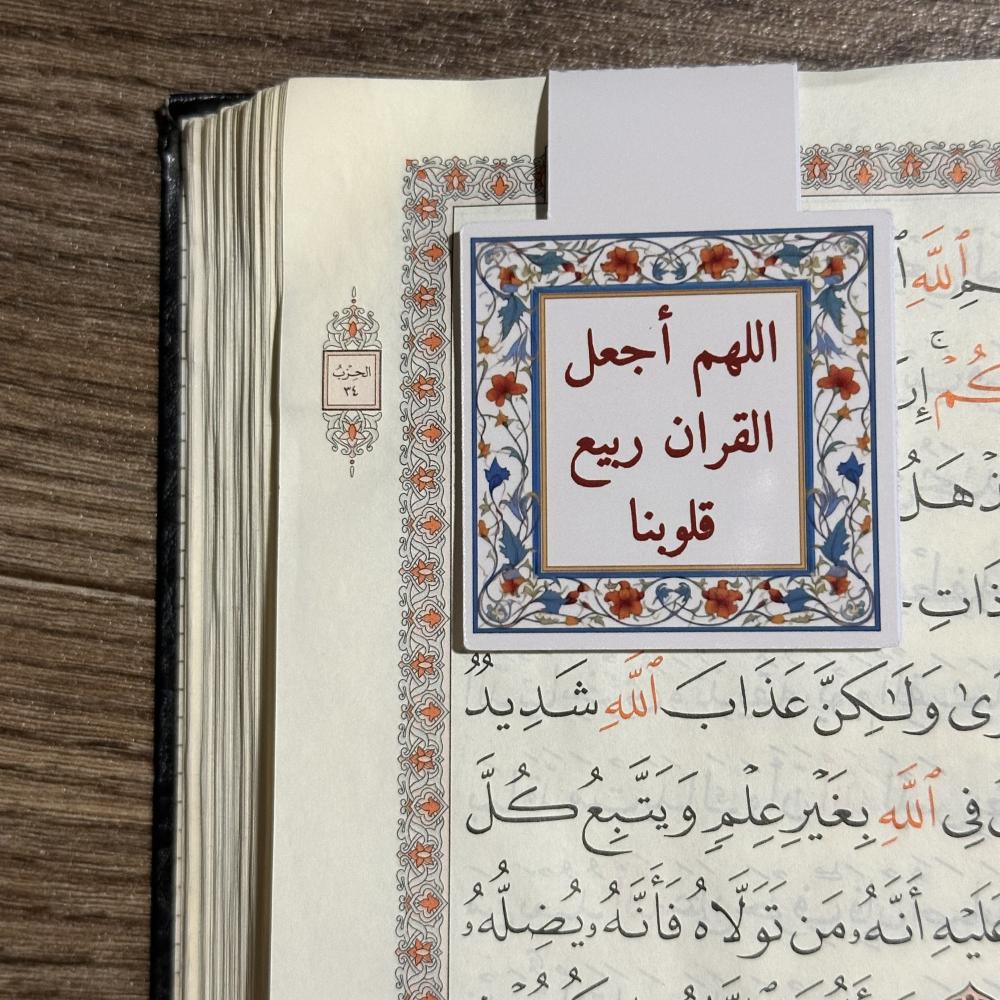 اللهم أجعل
القران ربيع
قلوبنا
الحزب
٣٤
ٱللَّهِ
كُمْ إِ
ذْهَلُ
ذَاتِ
رَىٰ وَلَٰكِنَّ عَذَابَ ٱللَّهِ شَدِيدٌ
فِى ٱللَّهِ بِغَيْرِ عِلْمٍ وَيَتَّبِعُ كُلَّ
عَلَيْهِ أَنَّهُۥ مَن تَوَلَّاهُ فَأَنَّهُۥ يُضِلُّهُۥ